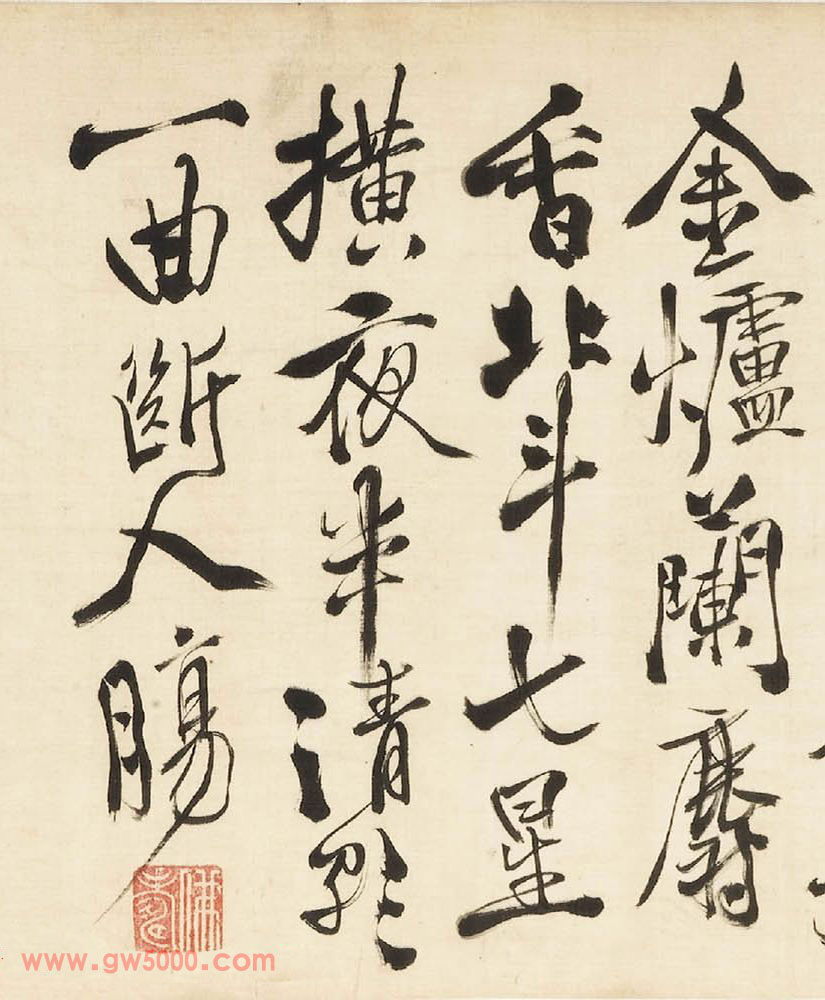 金爐蘭麝
香北斗七星
橫夜半清歌
一曲斷人腸
www.gw5000.com